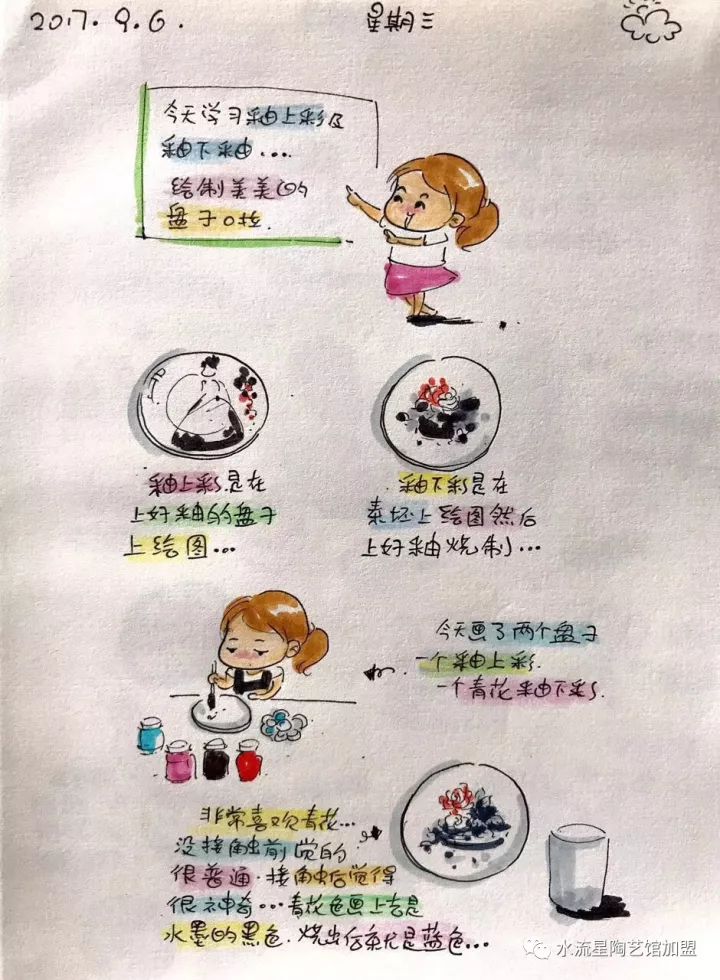 2017.9.6.
星期三
今天学习釉上彩及
釉下釉....
绘制美美的
盘子0拉.
釉上彩是在
上好釉的的盘子
上绘图...
釉下彩是在
素坯上绘图然后
上好釉烧制...
今天画了两个盘子
一个釉上彩.
一个青花釉下彩.
非常喜欢青花...
没接触前觉的
很普通.接触后觉得
很神奇...青花色画上去是
水墨的黑色.烧出后就是蓝色...
水流星陶艺馆加盟